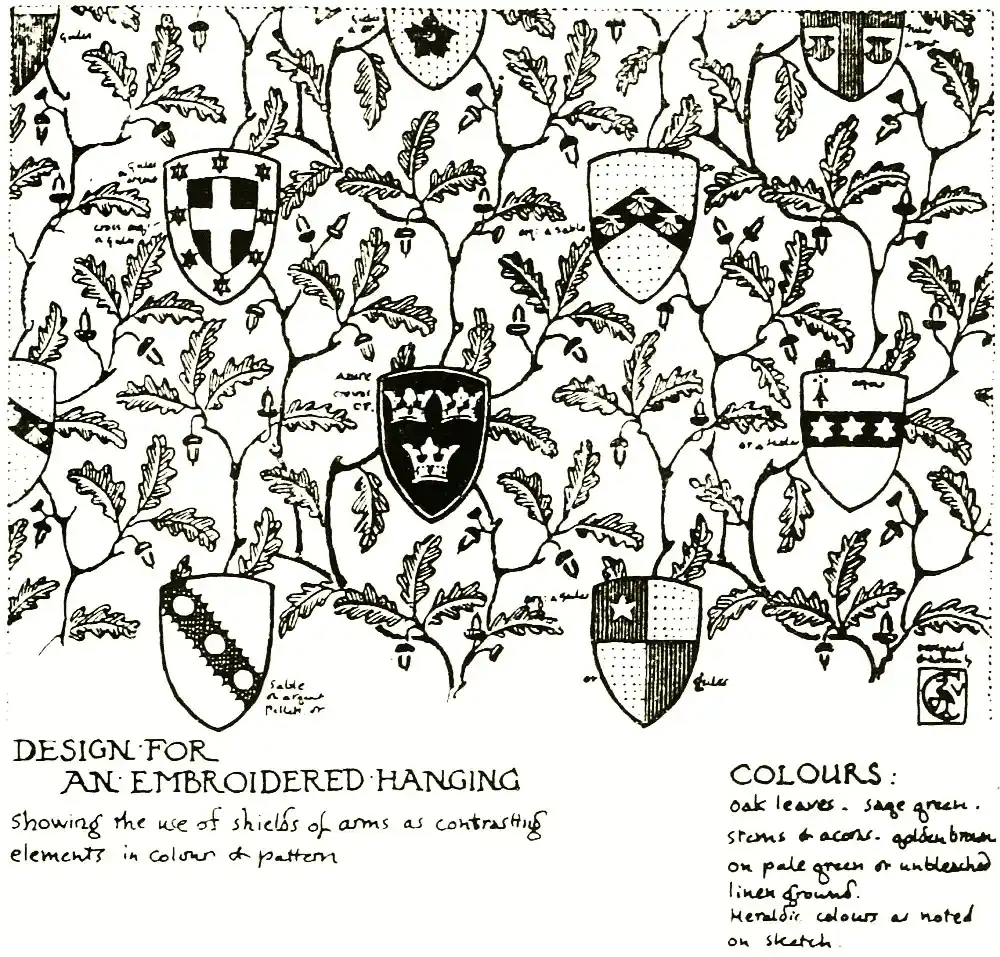 Gules
Gules
Gules
& argent
cross arg:
& Gules
arg: & Sable
Azure
crowns
or.
or & Sable
arg: & gules
or
gules
Sable
on argent
Pellets or
DESIGN·FOR
AN·EMBROIDERED·HANGING
showing the use of shields of arms as contrasting
elements in colour & pattern
COLOURS:
oak leaves - sage green.
stems & acorns - golden brown
on pale green or unbleached
linen ground.
Heraldic colours as noted
on sketch.